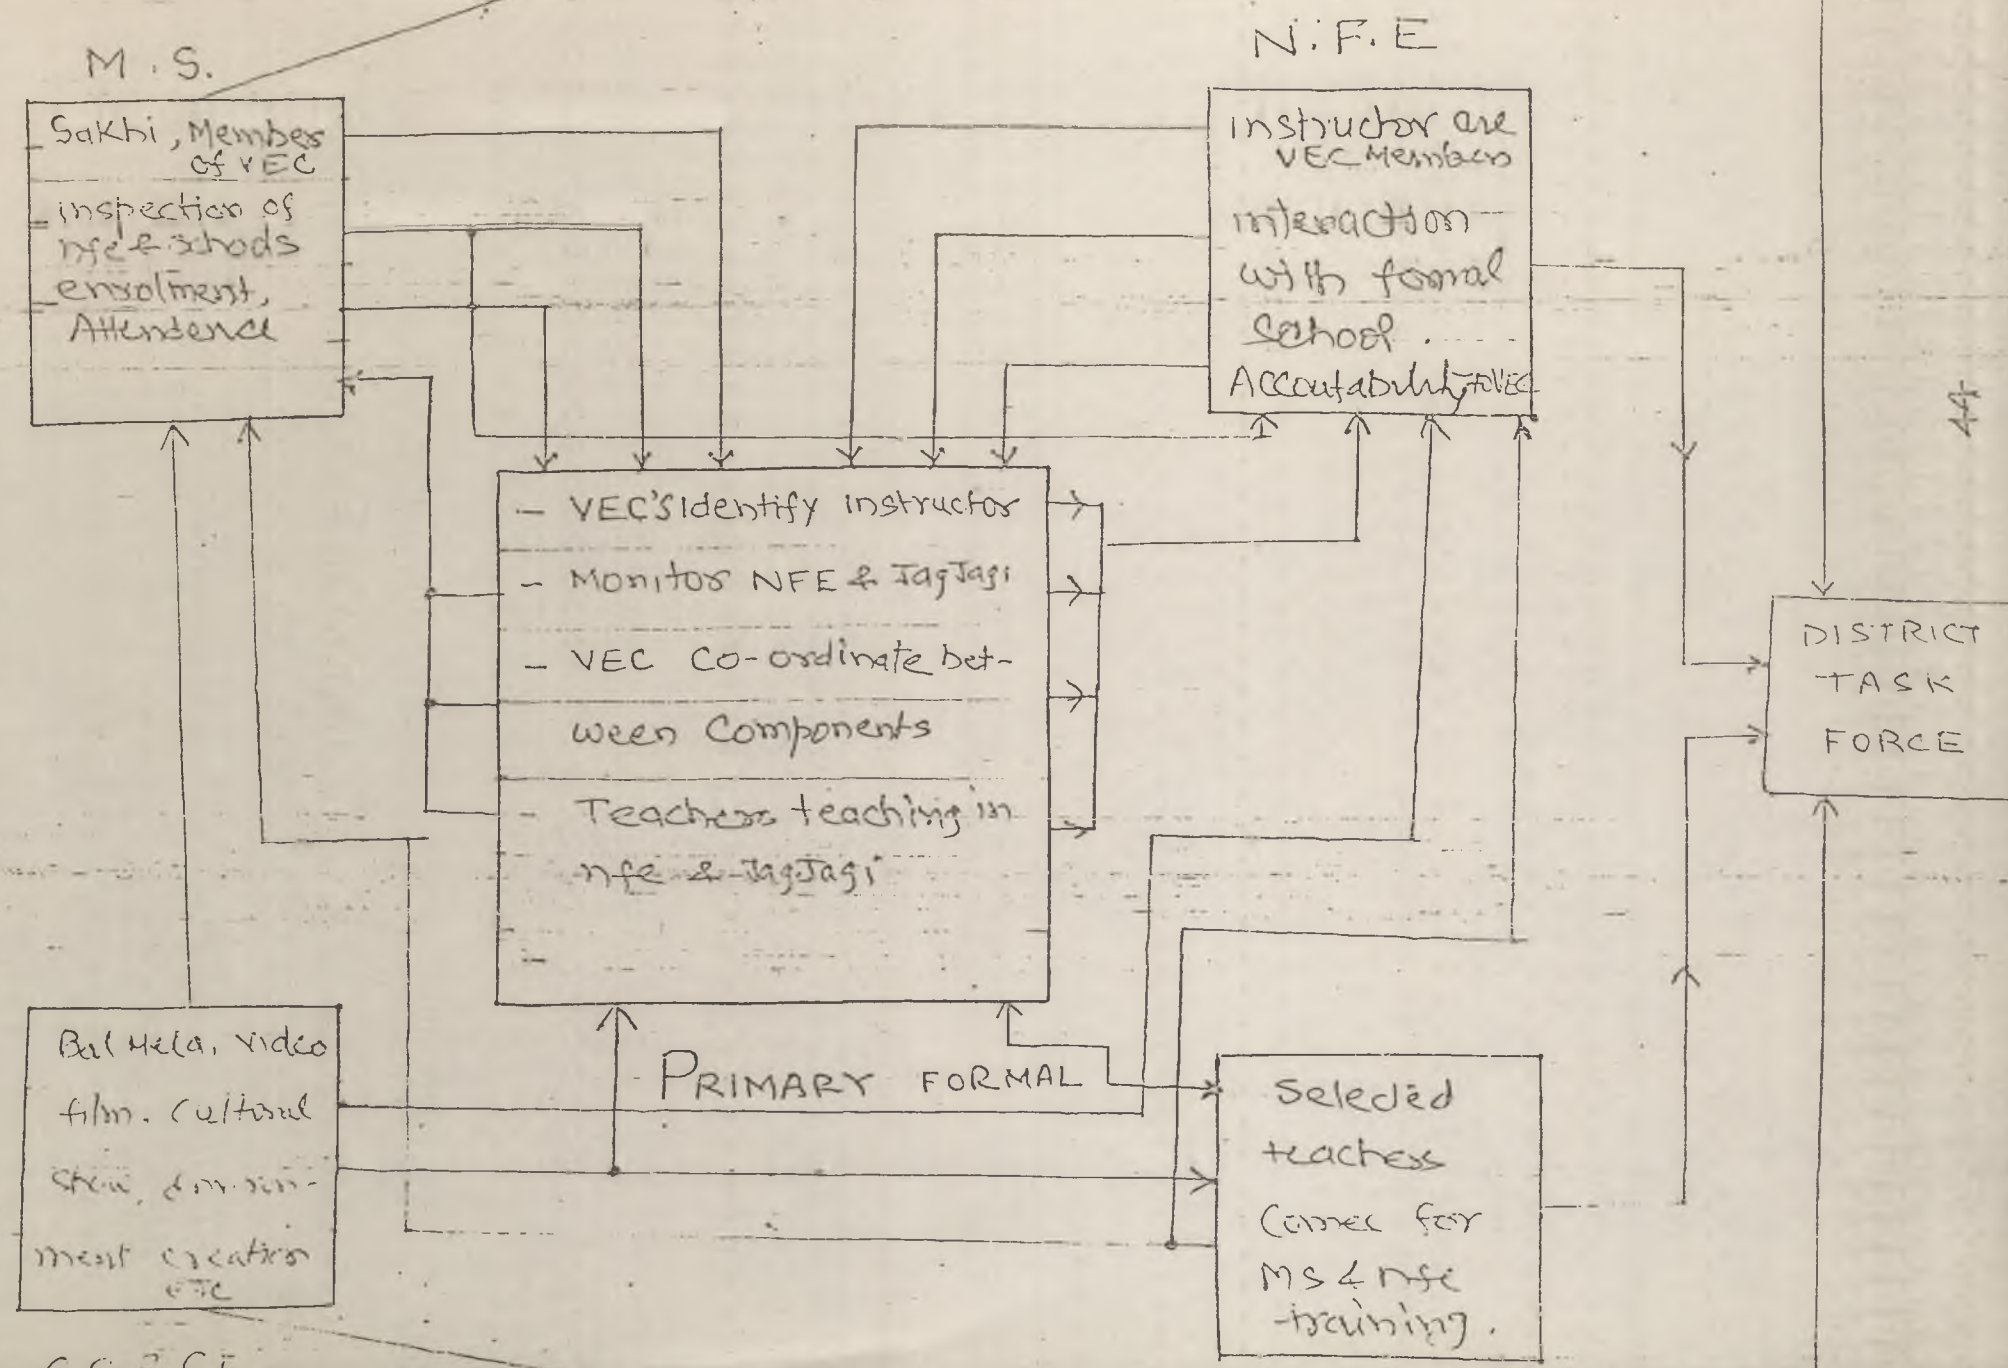 M.S.
Sakhi, Member
of VEC
inspection of
nfe & schods
enrolment,
Attendence
N.F.E
instructor are
VEC Members
interaction
with formal
School.
Accoutability to VEC
44
- VEC'S Identify instructor
- Monitor NFE & JagJagi
- VEC Co-ordinate bet-
ween Components
- Teachers teaching in
nfe & JagJagi
DISTRICT
TASK
FORCE
PRIMARY FORMAL
Bal Mela, Video
film. Cultural
ment creation
ETC
Selected
teachers
Comes for
MS & nfe
training.